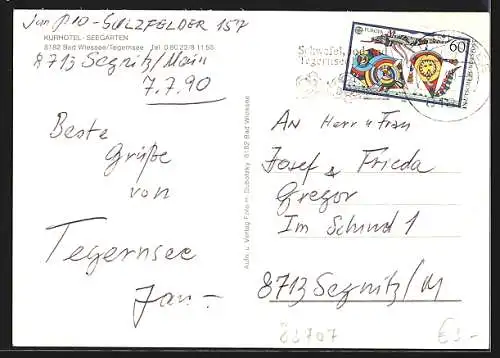 Jan P10-SULZFELDER 157
KURHOTEL - SEEGARTEN
8182 Bad Wiessee/Tegernsee Tel. 0 80 22/8 11 55
8713 Segnitz/Main
7.7.90
Beste
Grüße
von
Tegernsee
Jan -
Aufn. u. Verlag Foto Dubotzky 8182 Bad Wiessee
EUROPA
60
DEUTSCHE BUNDESPOST
Schwefelbad
Tegernsee
An Herr u Frau
Josef & Frieda
Gregor
Im Schind 1
8713 Segnitz/M
81707
€3.-